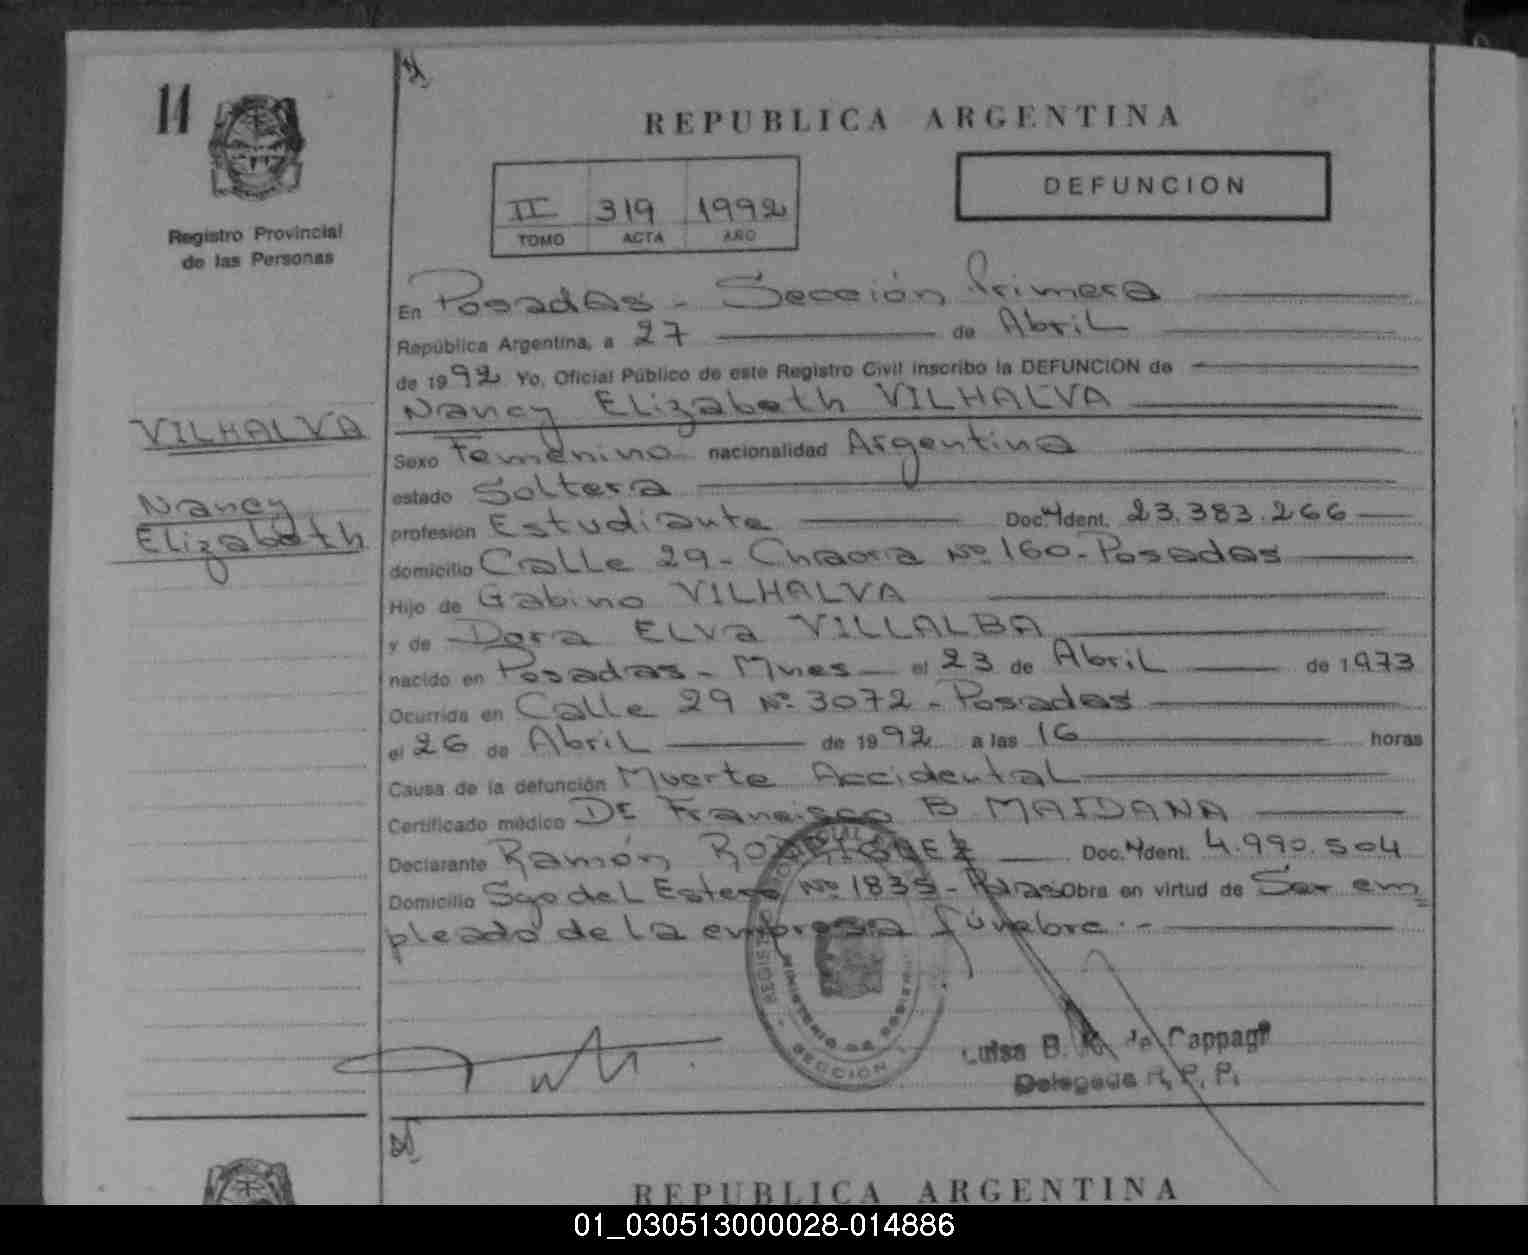 11
Registro Provincial
de las Personas
VILHALVA
Nancy
Elizabeth
REPUBLICA ARGENTINA
II 319 1992
TOMO ACTA AÑO
DEFUNCION
En Posadas - Sección Primera
República Argentina, a 27 de Abril
de 1992 Yo, Oficial Público de este Registro Civil inscribo la DEFUNCION de
Nancy Elizabeth VILHALVA
Sexo Femenino nacionalidad Argentina
estado Soltera
profesión Estudiante Doc. Ident. 23.383.266
domicilio Calle 29 - Chacra Nº 160 - Posadas
Hijo de Gabino VILHALVA
y de Dora ELVA VILLALBA
nacido en Posadas - Mnes - el 23 de Abril de 1973
Ocurrida en Calle 29 Nº 3072 - Posadas
el 26 de Abril de 1992 a las 16 horas
Causa de la defunción Muerte Accidental
Certificado médico Dr Francisco B MAIDANA
Declarante Ramón RODRIGUEZ Doc. Ident. 4.990.504
Domicilio Sgo del Estero Nº 1835 - Pdas Obra en virtud de Ser em
pleado de la empresa fúnebre.-
MINISTERIO DE GOBIERNO
SECCION
Luisa B. de Cappagli
Delegada R. P. P.
REPUBLICA ARGENTINA
01_030513000028-014886